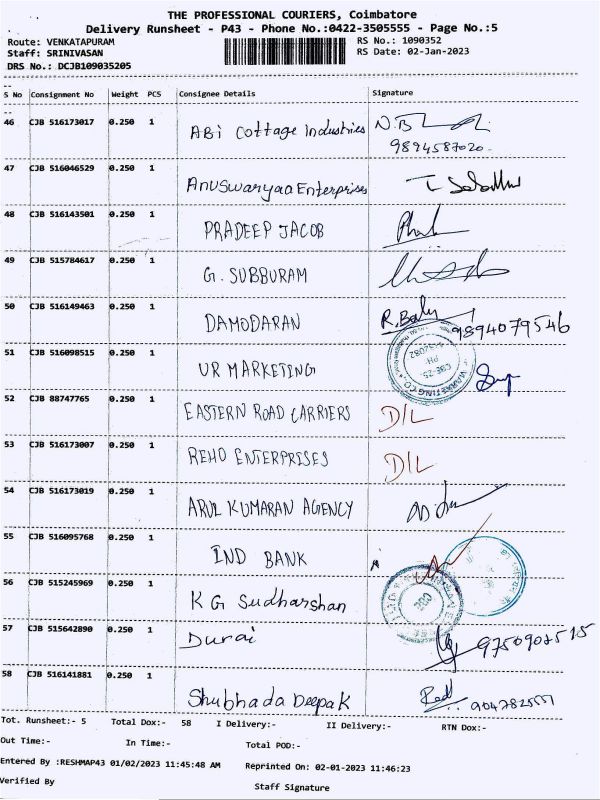 THE PROFESSIONAL COURIERS, Coimbatore
Delivery Runsheet - P43 - Phone No.:0422-3505555 - Page No.:5
Route: VENKATAPURAM RS No.: 1090352
Staff: SRINIVASAN RS Date: 02-Jan-2023
DRS No.: DCJB109035205
S No Consignment No Weight PCS Consignee Details Signature
46 CJB 516173017 0.250 1 ABi Cottage Industries
9894587020.
47 CJB 516046529 0.250 1 Anuswaryaa Enterprises
48 CJB 516143501 0.250 1 PRADEEP JACOB
49 CJB 515784617 0.250 1 G. SUBBURAM
50 CJB 516149463 0.250 1 DAMODARAN R. 9894079546
51 CJB 516098515 0.250 1 UR MARKETING
52 CJB 88747765 0.250 1 EASTERN ROAD CARRIERS D/L
53 CJB 516173007 0.250 1 REHO ENTERPRISES D/L
54 CJB 516173019 0.250 1 ARUL KUMARAN AGENCY
55 CJB 516095768 0.250 1 IND BANK
56 CJB 515245969 0.250 1 K G Sudharshan
57 CJB 515642890 0.250 1 Durai
58 CJB 516141881 0.250 1 Shubhada Deepak
Tot. Runsheet:- 5 Total Dox:- 58 I Delivery:- II Delivery:- RTN Dox:-
Out Time:- In Time:- Total POD:-
Entered By :RESHMAP43 01/02/2023 11:45:48 AM Reprinted On: 02-01-2023 11:46:23
Verified By Staff Signature